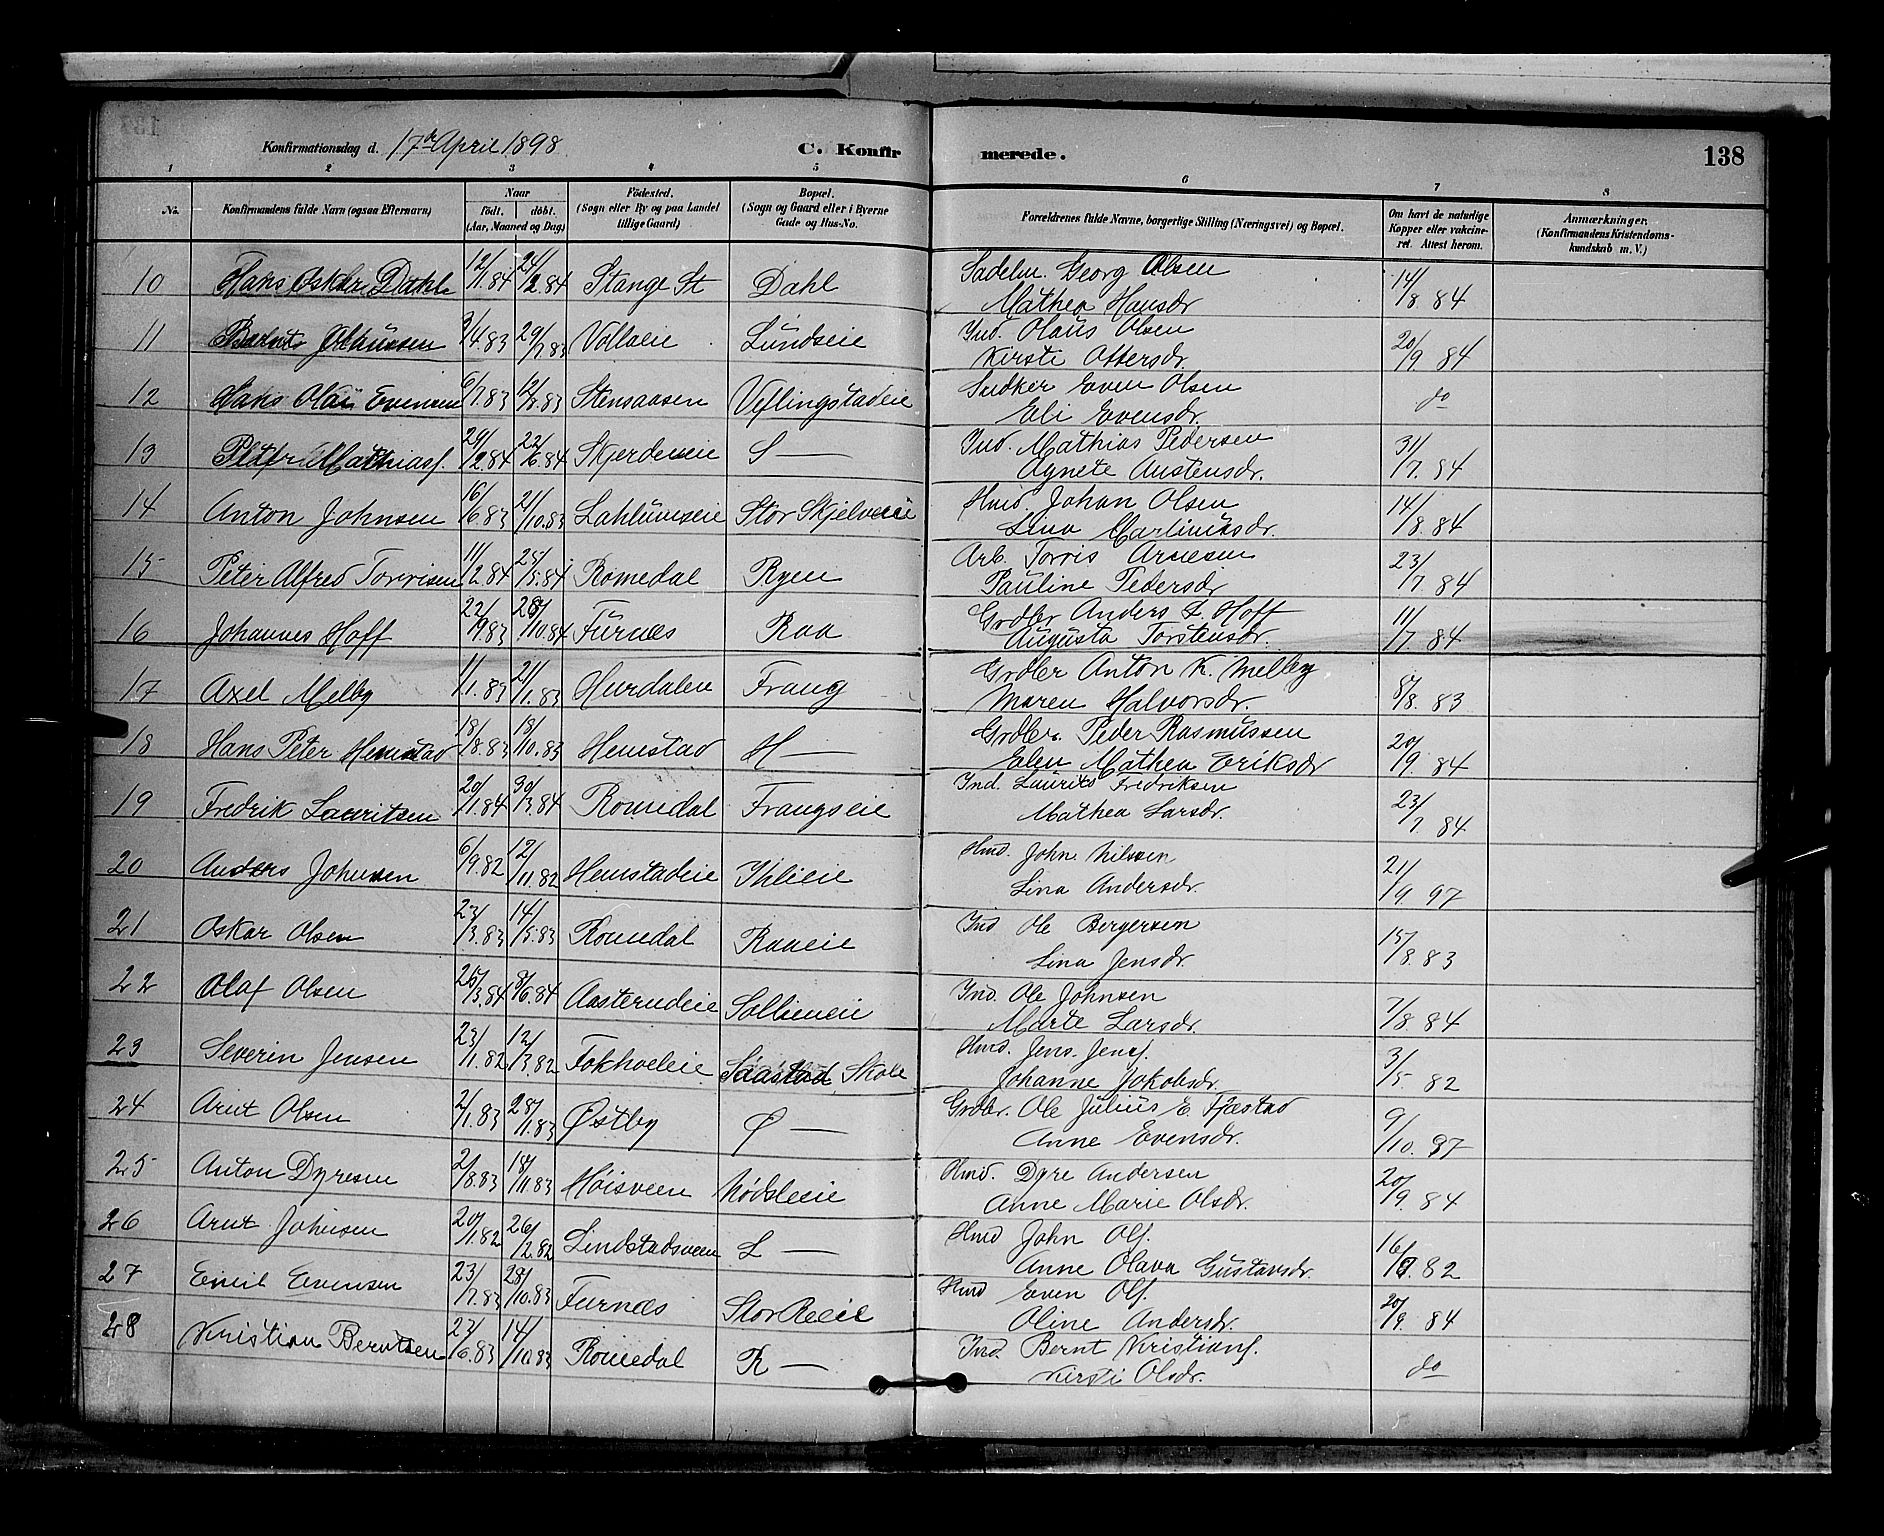 Konfirmationsdag d. 17de April 1898 C. Konfirmerede. 138
1 2 3 4 5 6 7 8
No. Konfirmandens fulde Navn (ogsaa Efternavn) Naar født. døbt. (Aar, Maaned og Dag) Fødested. (Sogn eller By og paa Landet tillige Gaard) Bopæl. (Sogn og Gaard eller i Byerne Gade og Hus-No. Forældrenes fulde Navne, borgerlige Stilling (Næringsvei) og Bopæl. Om havt de naturlige Kopper eller vakcineret. Attest herom. Anmærkninger. (Konfirmandens Kristendomskundskab m. V.)
10 Hans Oskar Dahl 12/1.84 24/2.84 Stange St Dahl Sadelm. Georg Olsen 14/8.84
Mathea Hansdr
11 Bernt Olaussen 3/4.83 29/7.83 Vollaeie Lundseie Ind. Olaus Olsen 20/9 84
Kirsti Ottersdr.
12 Hans Olai Evensen 6/7.83 12/8.83 Stensaasen Veflingstadeie Snedker Even Olsen do
Eli Evensdr.
13 Mathiass. 29/2.84 22/6.84 Skjerdeneie S — Ind. Mathias Pedersen 31/7.84
Agnete Austensdr.
14 Anton Johnsen 16/6.83 21/10.83 Lahlumseie Stor Skjelveeie Hmd. Johan Olsen 14/8.84
Lina Martinusdr.
15 Peter Alfred Torrisen 11/2.84 25/5.84 Romedal Ryen Arb. Torris Arnesen 23/7 84
Pauline Pedersdr
16 Johannes Hoff 22/9.83 28/10.84 Furnes Raa Grdbr Anders L. Hoff 11/7.84
Augusta Torstensdr.
17 Axel Melby 1/1.83 21/1.83 Hurdalen Frang Grdbr Anton K. Melby 8/8.83
Maren Halvorsdr.
18 Hans Peter Hemstad 18/8.83 18/10.83 Hemstad H — Grdbr. Peder Rasmussen 20/9 84
Elen Mathea Eriksdr
19 Fredrik Lauritsen 20/1.84 30/3.84 Romedal Frangseie Ind. Laurits Fredriksen 23/7.84
Mathea Larsdr.
20 Anders Johnsen 6/9.82 12/11.82 Hemstadeie Ihlieie Hmd. Johne Nilssen 21/9.97
Lina Andersdr.
21 Oskar Olsen 23/3.83 14/5.83 Romedal Raaeie Ind Ole Bergersen 15/8.83
Lina Jensdr.
22 Olaf Olsen 25/3.84 8/6.84 Aasterudeie Sollieneie Ind. Ole Johnsen 7/8 84
Marte Larsdr.
23 Severin Jensen 23/1.82 12/3.82 Fokhoeleie Saastad Skole Hmd. Jens Jens. 3/5.82
Johanne Jakobsdr.
24 Arnt Olsen 2/1.83 28/1.83 Østby Ø — Grdbr. Ole Julius E. Fjæstad 9/10.97
Anne Evensdr.
25 Anton Dyresen 2/8.83 18/11.83 Høisveen Nødsleeie Hmd. Dyre Andersen 20/9.84
Anne Marie Olsdr.
26 Arnt Johnsen 20/1.82 26/2.82 Lindstadsveen L — Hmd John Ols. 16/9.82
Anne Olava Gustavsdr.
27 Emil Evensen 23/7.83 28/10.83 Furnes Stor Reeie Hmd Even Ols. 20/9. 84
Oline Andersdr.
28 Kristian Berntsen 23/6.83 14/10.83 Romedal R — Ind. Bernt Kristians. do
Kirsti Olsdr.